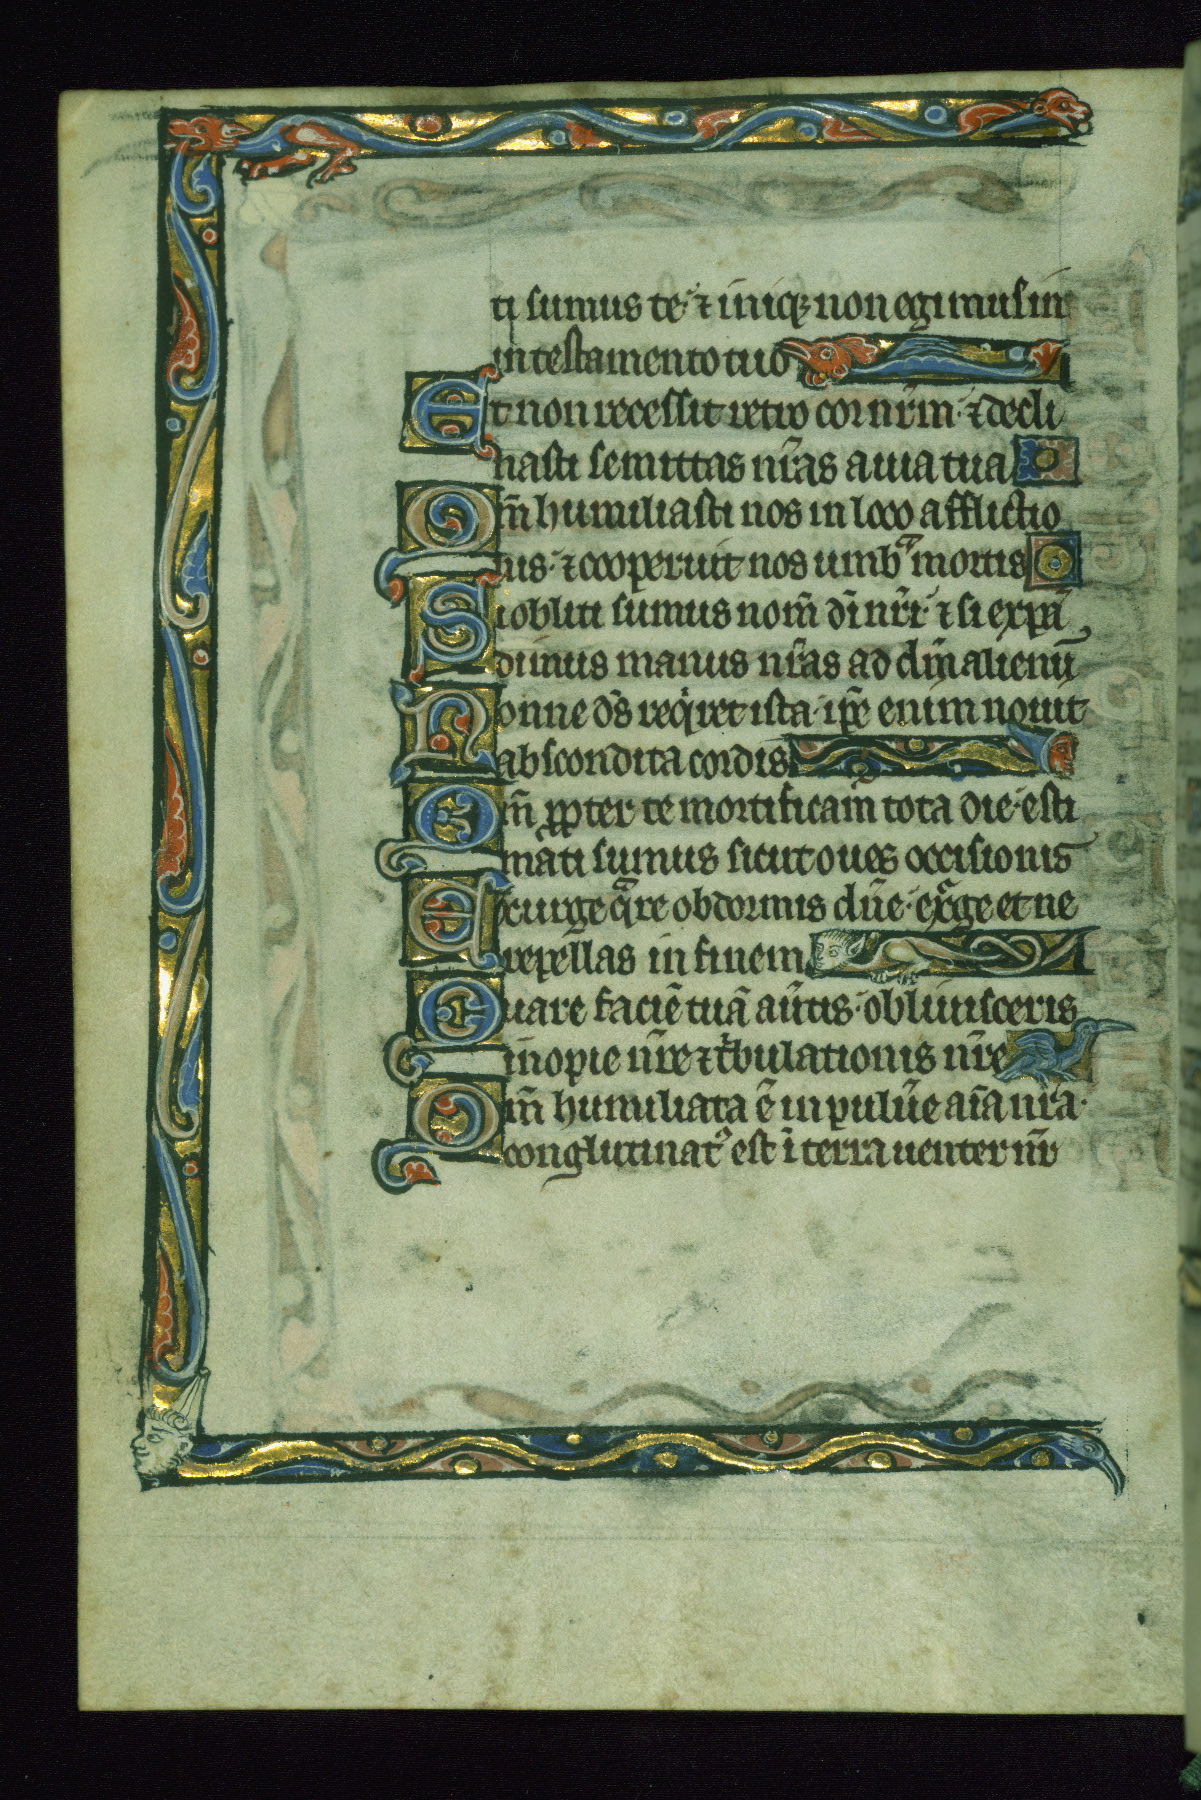 ti sumus te · ⁊ iniq; non egimus in
in testamento tuo
Et non recessit retro cor nr̄m · ⁊ decli
nasti semittas nr̄as a uia tua
Qm̄ humiliasti nos in loco afflictio
nis · ⁊ cooperuit nos umbᵃ mortis
Si obliti sumus nom̄ dī nr̄i · ⁊ si expā
dimus manus nr̄as ad dm̄ alienū
Nonne ds̄ reqͥret ista · ip̄e enim nouit
abscondita cordis
Qm̄ ꝓpter te mortificam̄ tota die · esti
mati sumus sicut oues occisionis
Exurge qᵃre obdormis dn̄e · exᵘge et ne
repellas in finem
Quare faciē tuā au̅tis · obliuisceris
inopie nr̄e ⁊ tͥbulationis nr̄e
Qm̄ humiliata ē in pulu̅e aīa nr̄a ·
conglutinatᵘ est ī terra uenter nr̄